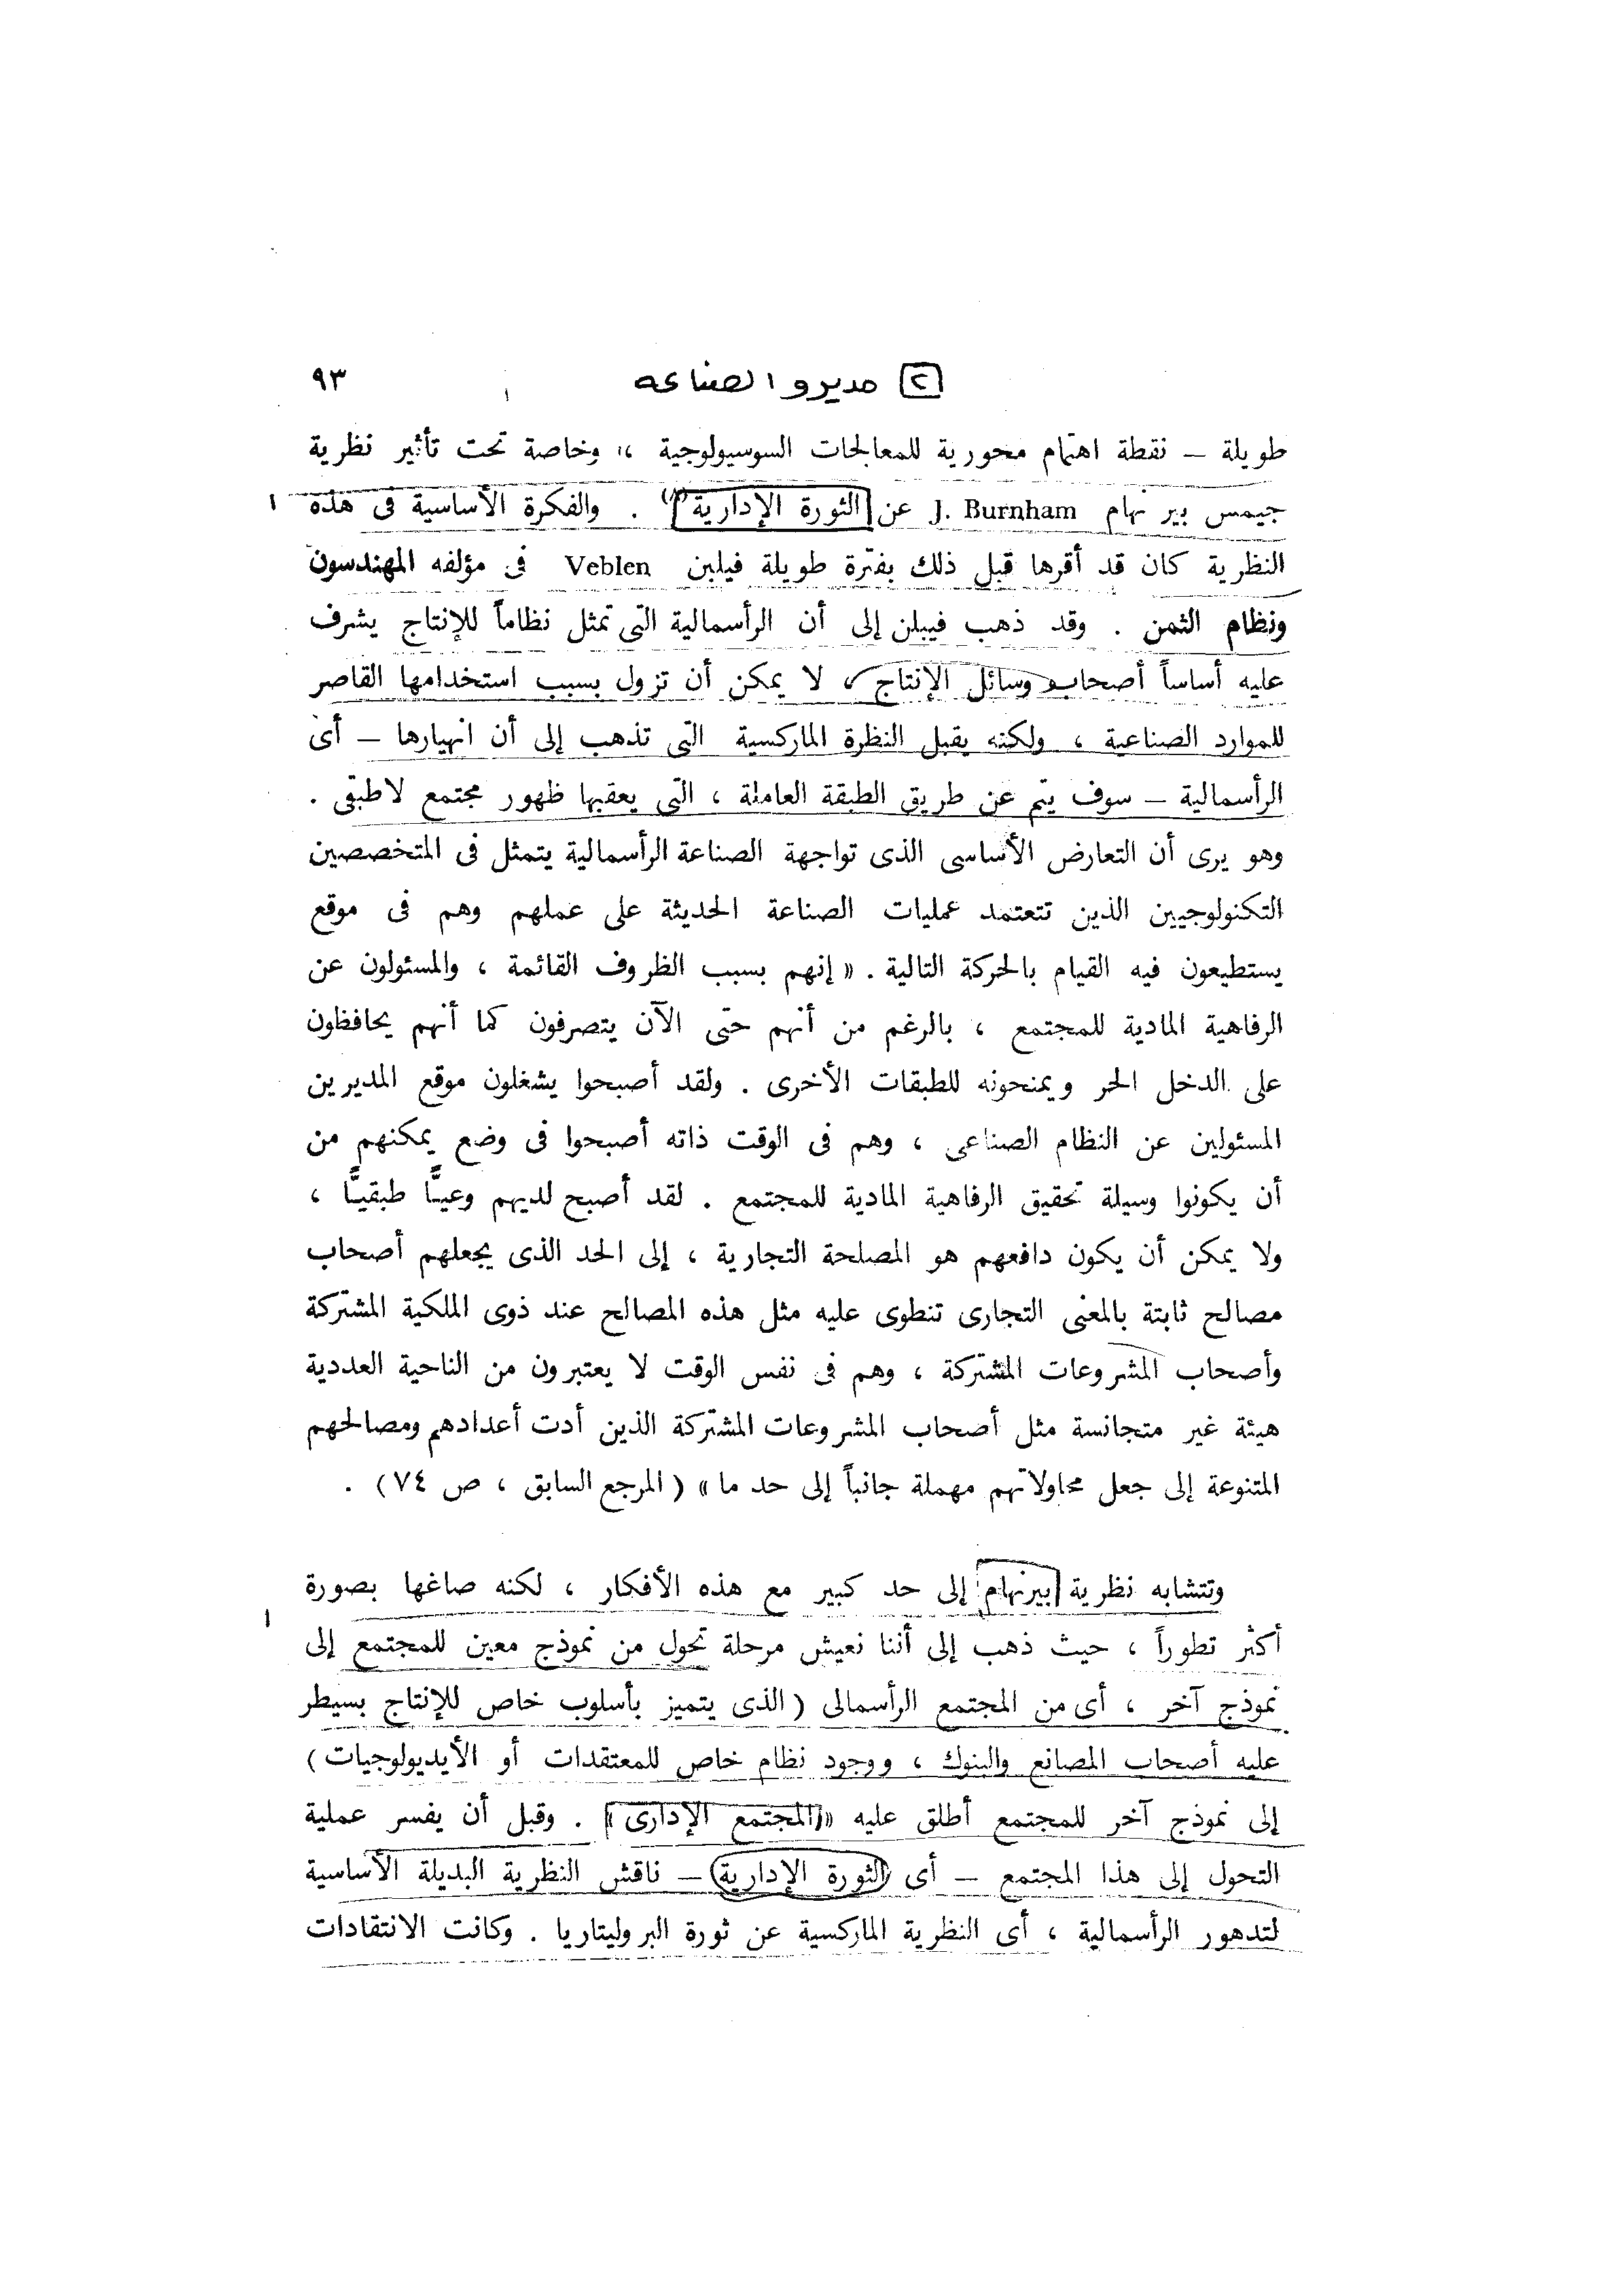 ٩٣
[٢] مديرو الصناعه
طويلة – نقطة اهتمام محورية للمعالجات السوسيولوجية ، وخاصة تحت تأثير نظرية
جيمس بير نهام J. Burnham عن الثورة الإدارية(٨) . والفكرة الأساسية فى هذه
النظرية كان قد أقرها قبل ذلك بفترة طويلة فيلبن Veblen فى مؤلفه المهندسون
ونظام الثمن . وقد ذهب فيبلن إلى أن الرأسمالية التى تمثل نظاماً للإنتاج يشرف
عليه أساساً أصحاب وسائل الإنتاج ، لا يمكن أن تزول بسبب استخدامها القاصر
للموارد الصناعية ، ولكنه يقبل النظرة الماركسية التى تذهب إلى أن انهيارها – أى
الرأسمالية – سوف يتم عن طريق الطبقة العاملة ، التى يعقبها ظهور مجتمع لاطبقى .
وهو يرى أن التعارض الأساسى الذى تواجهة الصناعة الرأسمالية يتمثل فى المتخصصين
التكنولوجيين الذين تتعتمد عمليات الصناعة الحديثة على عملهم وهم فى موقع
يستطيعون فيه القيام بالحركة التالية . « إنهم بسبب الظروف القائمة ، والمسئولون عن
الرفاهية المادية للمجتمع ، بالرغم من أنهم حتى الآن يتصرفون كما أنهم يحافظون
على الدخل الحر ويمنحونه للطبقات الأخرى . ولقد أصبحوا يشغلون موقع المديرين
المسئولين عن النظام الصناعى ، وهم فى الوقت ذاته أصبحوا فى وضع يمكنهم من
أن يكونوا وسيلة تحقيق الرفاهية المادية للمجتمع . لقد أصبح لديهم وعيـًّا طبقيـًّا ،
ولا يمكن أن يكون دافعهم هو المصلحة التجارية ، إلى الحد الذى يجعلهم أصحاب
مصالح ثابتة بالمعنى التجارى تنطوى عليه مثل هذه المصالح عند ذوى الملكية المشتركة
وأصحاب المشروعات المشتركة ، وهم فى نفس الوقت لا يعتبرون من الناحية العددية
هيئة غير متجانسة مثل أصحاب المشروعات المشتركة الذين أدت أعدادهم ومصالحهم
المتنوعة إلى جعل محاولاتهم مهملة جانباً إلى حد ما » ( المرجع السابق ، ص ٧٤ ) .
وتتشابه نظرية بيرنهام إلى حد كبير مع هذه الأفكار ، لكنه صاغها بصورة
أكثر تطوراً ، حيث ذهب إلى أننا نعيش مرحلة تحول من نموذج معين للمجتمع إلى
نموذج آخر ، أى من المجتمع الرأسمالى ( الذى يتميز بأسلوب خاص للإنتاج بسيطر
عليه أصحاب المصانع والبنوك ، ووجود نظام خاص للمعتقدات أو الأيديولوجيات )
إلى نموذج آخر للمجتمع أطلق عليه « المجتمع الإدارى » . وقبل أن يفسر عملية
التحول إلى هذا المجتمع – أى الثورة الإدارية – ناقش النظرية البديلة الأساسية
لتدهور الرأسمالية ، أى النظرية الماركسية عن ثورة البروليتاريا . وكانت الانتقادات